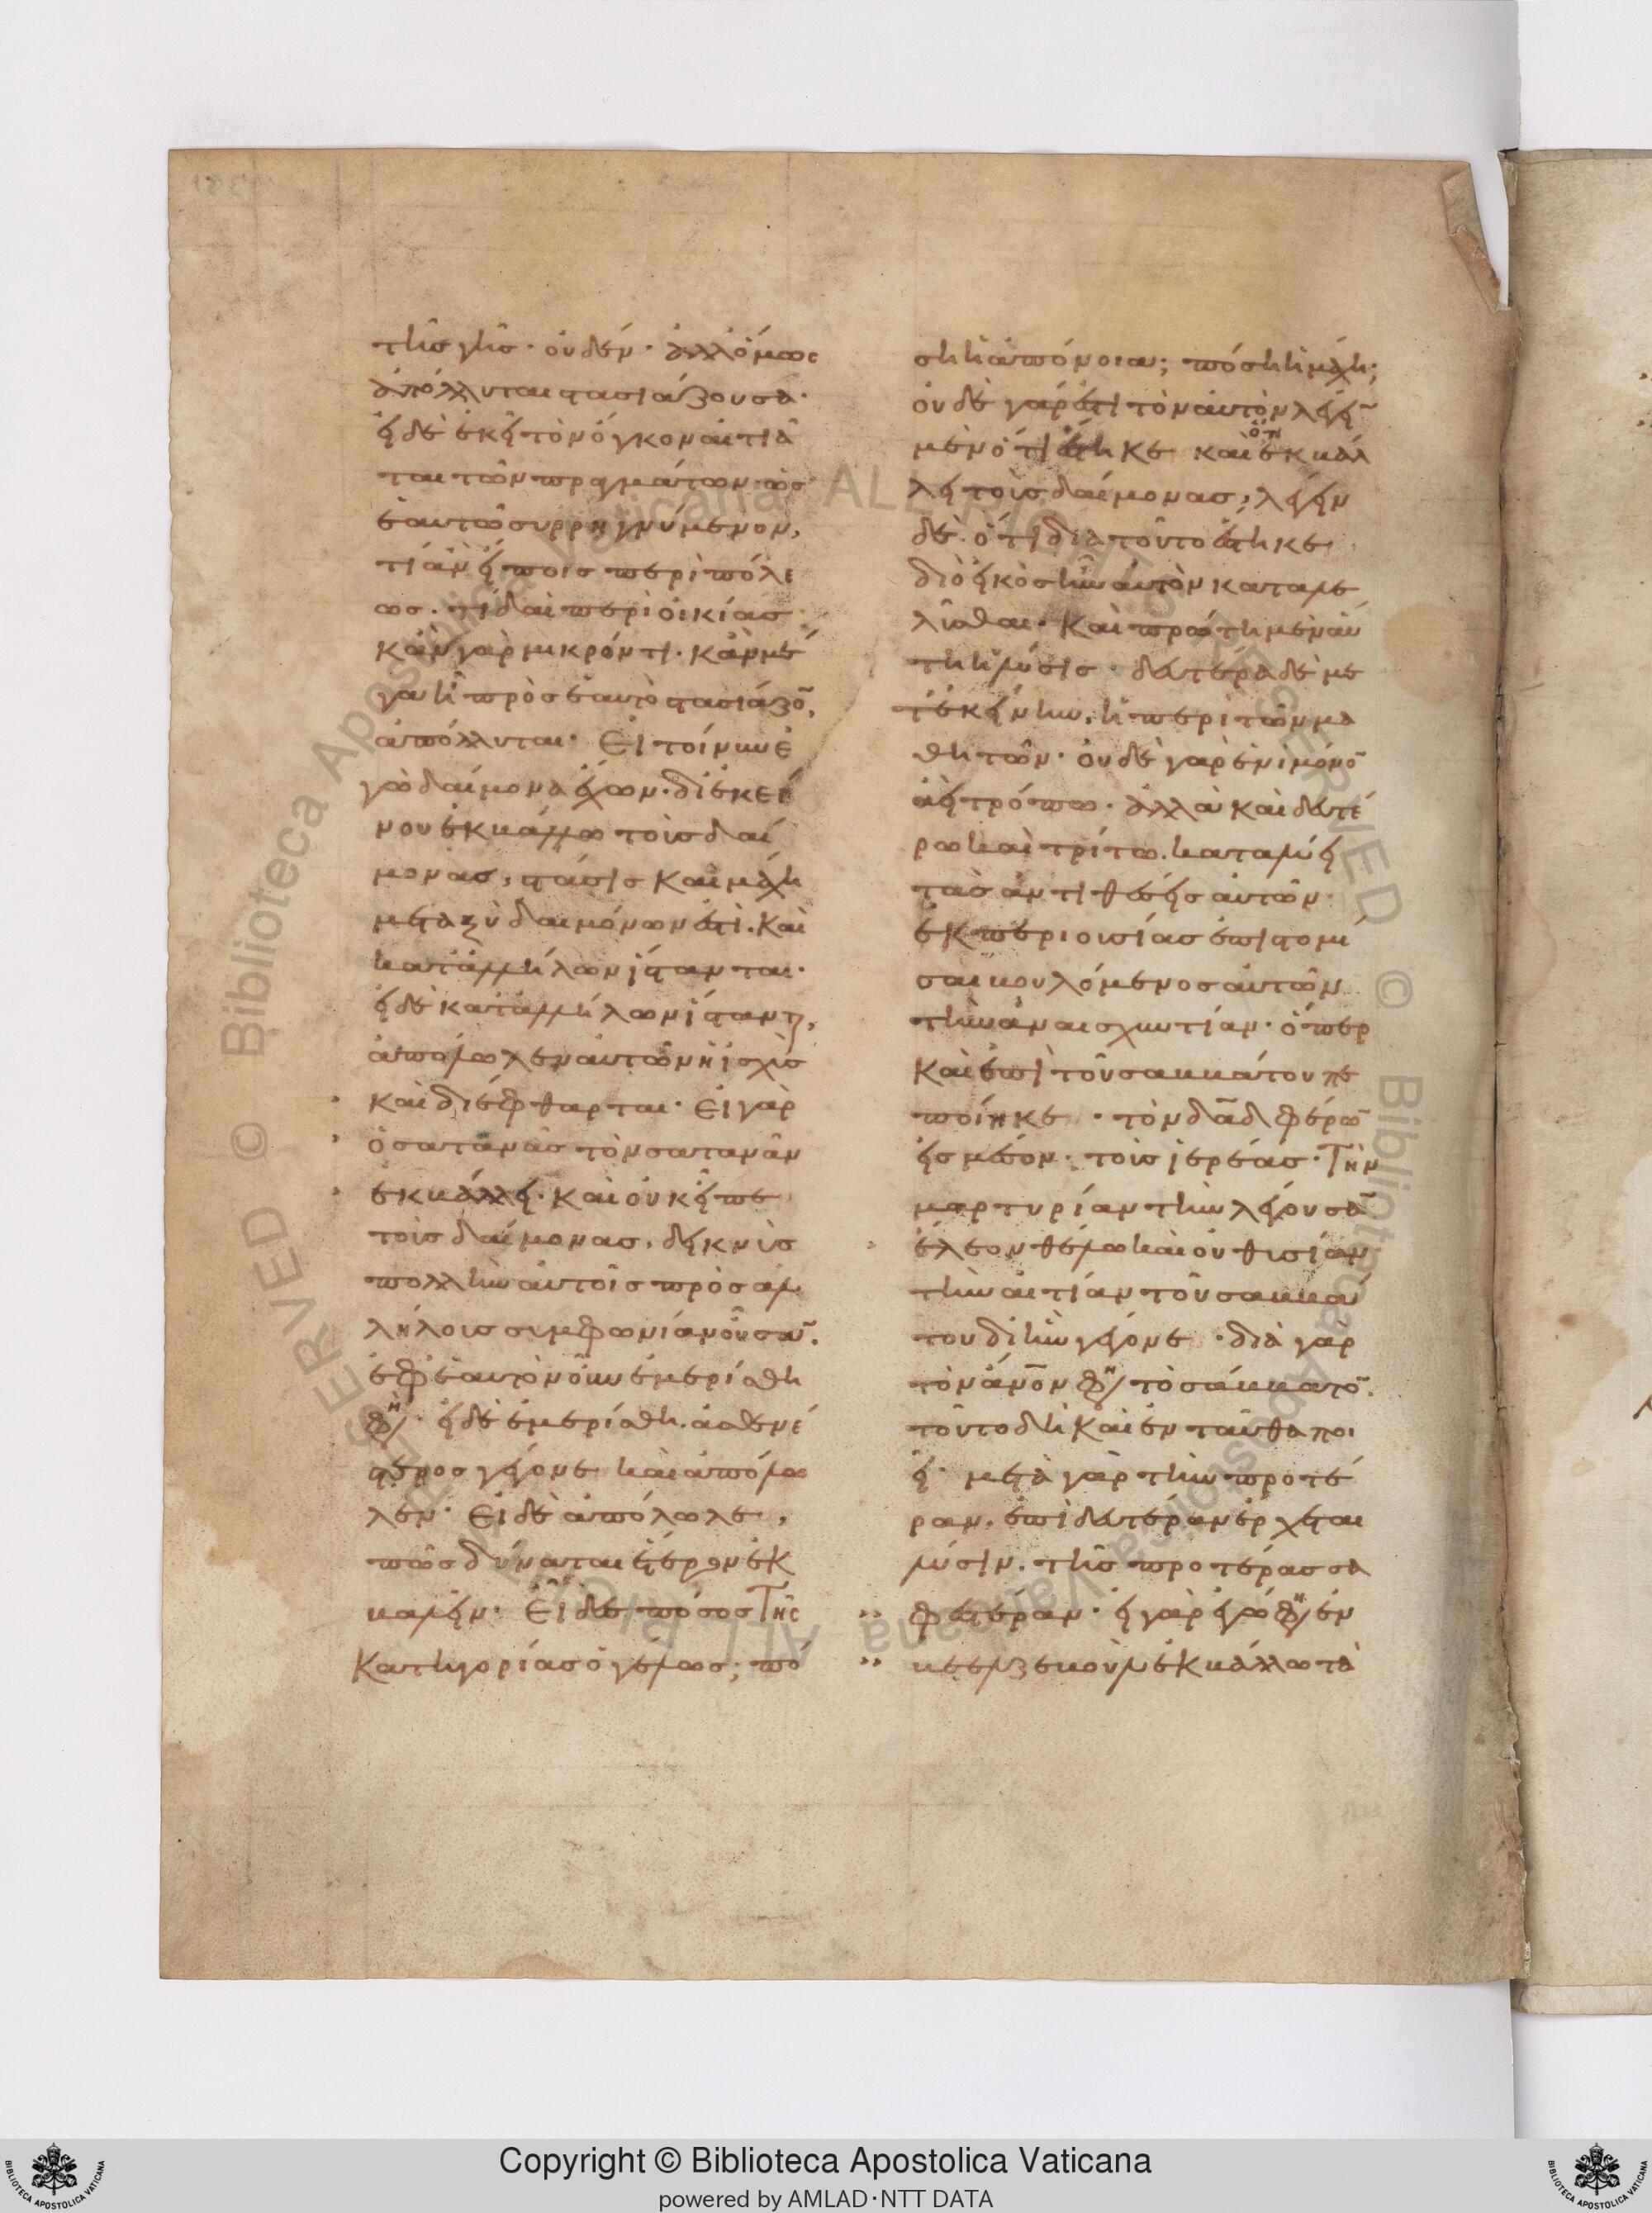 τῆς γῆς· οὐδέν· ἀλλ' ὅμως
ἀπόλλυται στασιάζουσα·
εἰ δὲ ἐκεῖ τὸν ὄγκον αἰτιᾶ
ται τῶν πραγμάτων ὡς
ἑαυτῶ συρρηγνύμενον,
τί ἂν εἴποις περὶ πόλε
ως· τί δαὶ περὶ οἰκίας
κἂν γὰρ μικρόν τι· κἂν μέ
γα ἦ πρὸς ἑαυτὸ στασιάζο̄,
ἀπόλλυται· Εἰ τοίνυν ἐ
γὼ δαίμονα ἔχων· δι' ἐκεί
νου ἐκβάλλω τοὺς δαί
μονας, στάσις καὶ μάχη
μεταξὺ δαιμόνων ἐστὶ. καὶ
κατ' ἀλλήλων ἵστανται·
εἰ δὲ κατ' ἀλλήλων ἵστανται,
ἀπόλωλεν αὐτῶν ἡ ἰσχὺς
καὶ διέφθαρται· Εἰ γὰρ
ὁ σατανᾶς τὸν σατανᾶν
ἐκβάλλει· καὶ οὐκ εἶπε
τοὺς δαίμονας, δεικνὺς
πολλὴν αὐτοῖς πρὸς ἀλ
λήλοις συμφωνίαν οὖσᾱ.
ἐφ' ἑαυτὸν οὖν ἐμερίσθη
φη· εἰ δὲ ἐμερίσθη. ἀσθενέ
στερος γέγονε καὶ ἀπόλω
λεν· Εἰ δὲ ἀπόλωλε,
πῶς δύναται ἕτερον ἐκ
βαλεῖν· Εἶδες πόσος τῆς
κατηγορίας ὁ γέλως; πό
ση ἡ ἀπόνοια; πόση ἡ μάχη;
οὐδὲ γάρ ἐστι τὸν αὐτὸν λέγεῑ
μὲν ὅτι ἕστηκε καὶ ὅτι ἐκβάλ
λει τοὺς δαίμονας, λέγειν
δὲ ὅτι διὰ τοῦτο ἕστηκε
διὸ εἰκὸς ἦν αὐτὸν καταλε
λῦσθαι· Καὶ πρώτη μὲν αὕ
τη ἡ λύσις· δευτέρα δὲ με
τ' ἐκείνην, ἡ περὶ τῶν μα
θητῶν· οὐδὲ γὰρ ἑνὶ μόνο̄
ἀεὶ τρόπω· ἀλλὰ καὶ δευτέ
ρω καὶ τρίτω. καταλύει
τὰς ἀντιθέσεις αὐτῶν·
ἐκ περιουσίας ἐπιστομί
σαι βουλόμενος αὐτῶν
τὴν ἀναισχυντίαν· ὅπερ
καὶ ἐπὶ τοῦ σαββάτου πε
ποίηκε· τὸν δᾱδ φέρω̄
εἰς μέσον· τοὺς ἱερέας· Τὴν
μαρτυρίαν τὴν λέγουσᾱ
ἔλεον θέλω καὶ οὐ θυσίαν·
τὴν αἰτίαν τοῦ σαββά
του δι' ἣν γέγονε· διὰ γὰρ
τὸν ἄνο̄ν φη τὸ σάββατο̄.
τοῦτο δὴ καὶ ἐνταῦθα ποι
εῖ· μετὰ γὰρ τὴν προτέ
ραν, ἐπὶ δευτέραν ἔρχεται
λύσιν. τῆς προτέρας σα
φεστέραν· εἰ γὰρ ἐγώ φη ἐν
βεελζεβοὺλ ἐκβάλλω τὰ